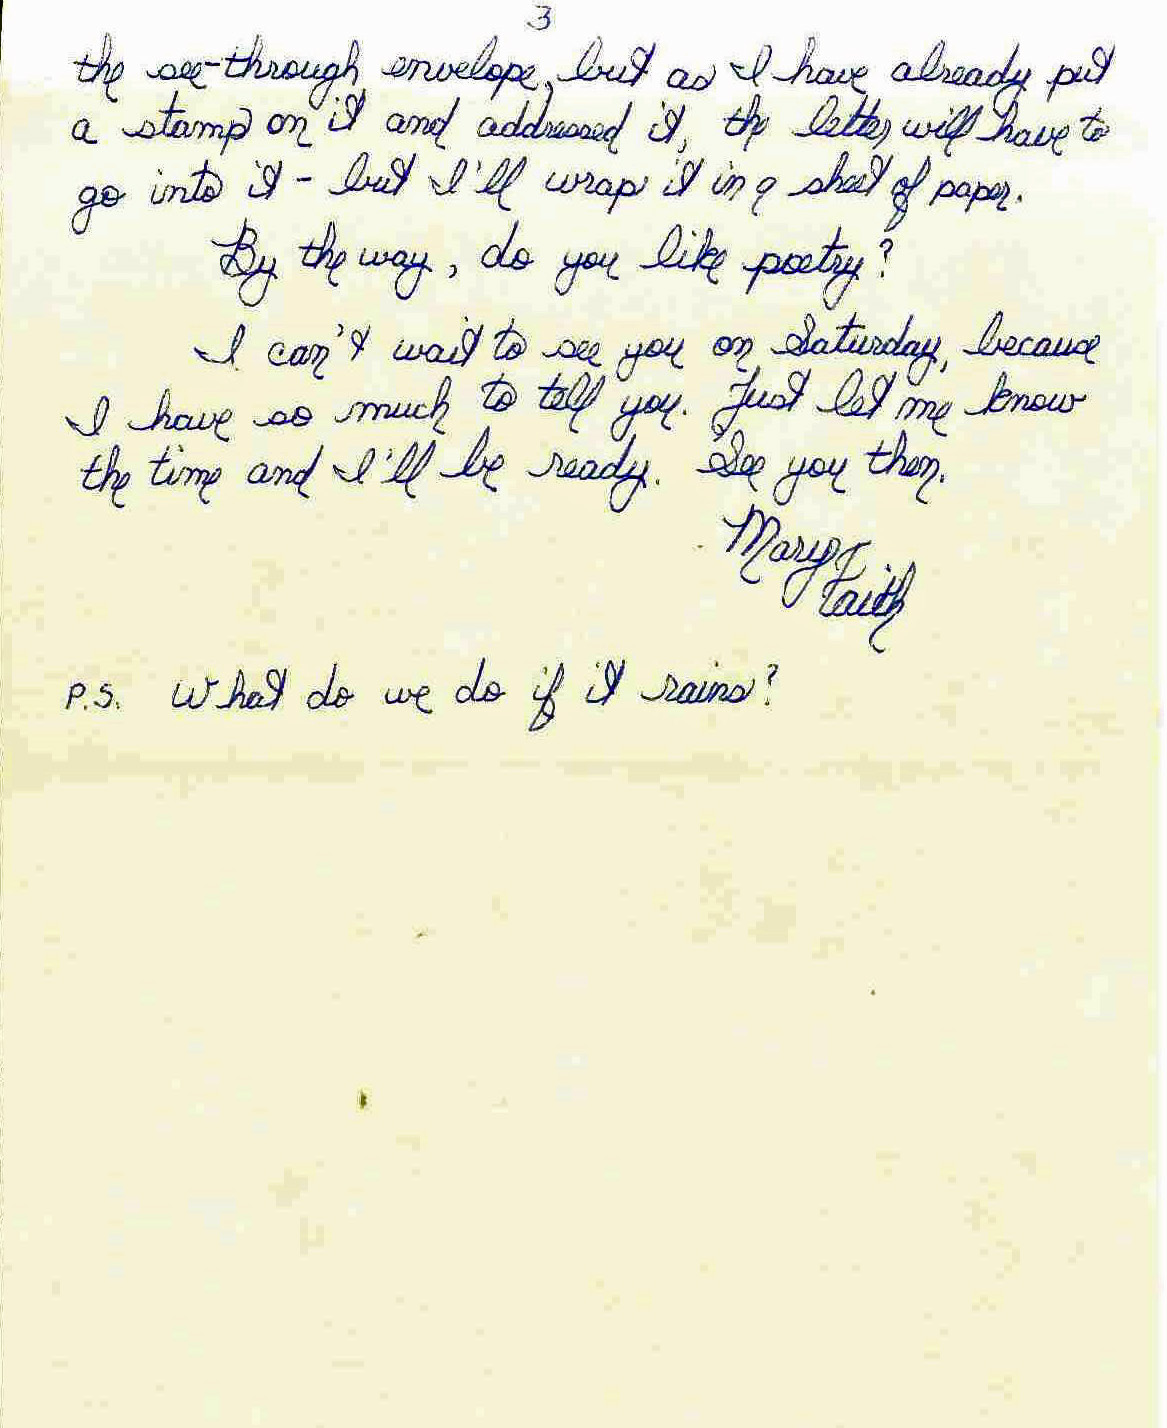 3
the see-through envelope, but as I have already put
a stamp on it and addressed it, the letter will have to
go into it - but I'll wrap it in a sheet of paper.
By the way, do you like poetry?
I can't wait to see you on Saturday, because
I have so much to tell you. Just let me know
the time and I'll be ready. See you then.
Mary
Faith
P.S. What do we do if it rains?